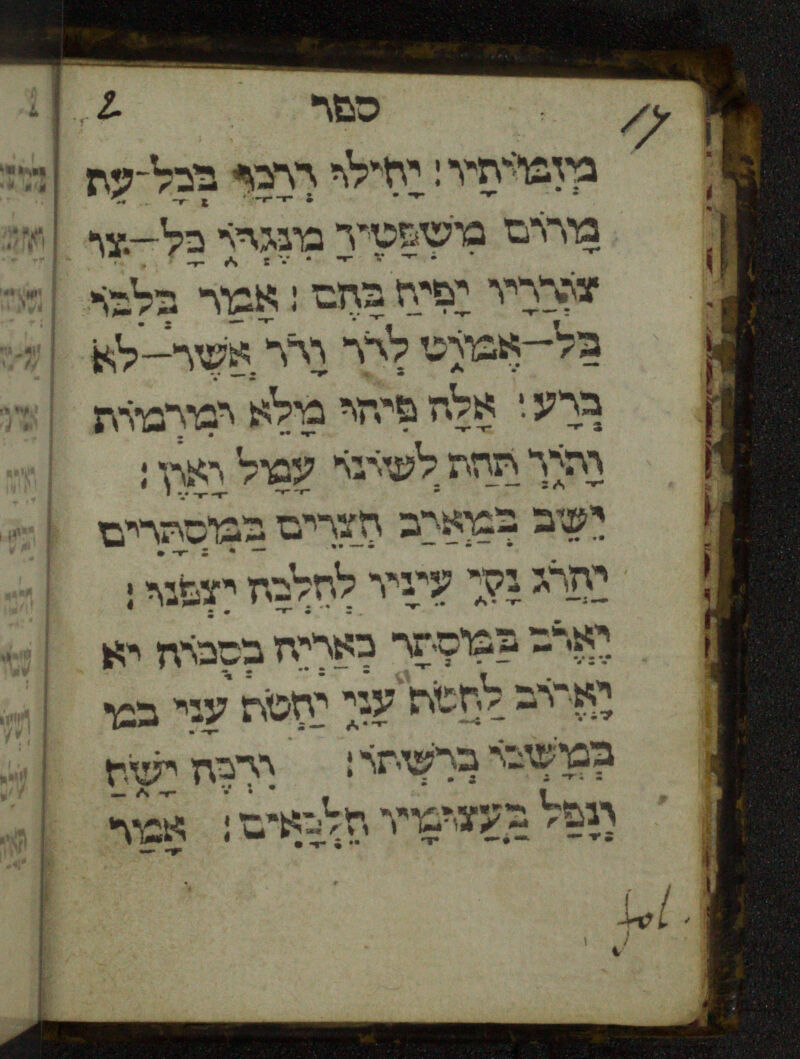 2 ספר 17
מְזִמּוֹתָיו׃ יָחִילוּ דְרָכָו בְּכָל־עֵת
מָרוֹם מִשְׁפָּטֶיךָ מִנֶּגְדּוֹ כָּל־צו
צוֹרְרָיו יָפִיחַ בָּהֶם׃ אָמַר בְּלִבּוֹ
בַּל־אֶמּוֹט לְדֹר וָדֹר אֲשֶׁר־לֹא
בְרָע׃ אָלָה פִּיהוּ מָלֵא וּמִרְמוֹת
וָתוֹךְ תַּחַת לְשׁוֹנוֹ עָמָל וָאָוֶן׃
יֵשֵׁב בְּמַאְרַב חֲצֵרִים בַּמִּסְתָּרִים
יַהֲרֹג נָקִי עֵינָיו לְחֵלְכָה יִצְפֹּנוּ׃
יֶאֱרֹב בַּמִּסְתָּר כְּאַרְיֵה בְסֻכּוֹה יא
יֶאֱרוֹב לַחֲטֹף עָנִי יַחְטֹף עָנִי במ
בְּמָשְׁכוֹ בְרִשְׁתּוֹ׃ וִדְכֶּה יָשֹׁחַ
וְנָפַל בַּעֲצוּמָיו חֵלְכָּאִים׃ אָמַר
fol.